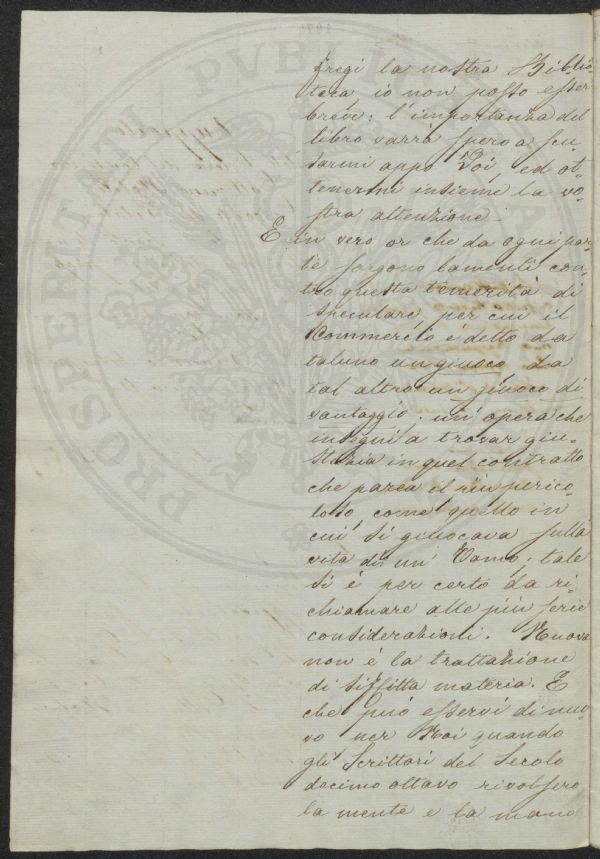 fregi la nostra Biblio-
teca io non posso esser
breve: l'importanza del
libro varrà spero a scu-
sarmi appo Voi, ed ot-
tenermi insieme la vo-
stra attenzione
E in vero or che da ogni par-
te sorgono lamenti con-
tro questa temerità di
speculare, per cui il
Commercio é detto da
taluno un giuoco, da
tal altro un giuoco di
vantaggio. un' opera che
insegni a trovar giu-
stizia in quel contratto
che parea il più perico-
loso come quello in
cui si giuocava sulla
vita di un' Uomo; tale
si è per certo da ri-
chiamare alle più serie
considerazioni. Nuova
non é la trattazione
di siffitta materia. E
che può esservi di nuo-
vo per Noi quando
gli Scrittori del Secolo
decimo ottavo rivolsero
la mente e la mano
PROSPERITATI PVBLICAE